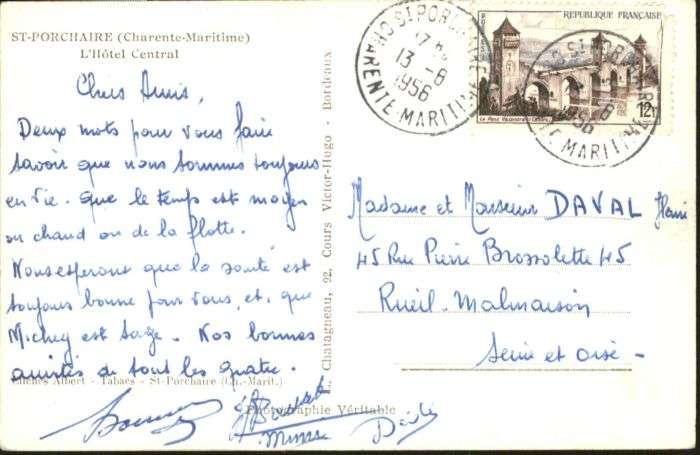 ST-PORCHAIRE (Charente-Maritime)
L'Hôtel Central
Chers Amis,
Deux mots pour vous faire
savoir que nous sommes toujours
en vie. que le temps est moyen
ou chaud ou de la flotte.
Nous esperont que la santé est
toujours bonne pour vous, et, que
Mickey est sage. Nos bonnes
amitiés de tout les quatre.
Clichés Albert - Tabacs - St-Porchaire (Ch.-Marit.)
Photographie Véritable
L. Chatagneau, 92, Cours Victor-Hugo - Bordeaux
ST PORCHAIRE
13 -8
1956
CHARENTE MARITIME
REPUBLIQUE FRANÇAISE
POSTES
12f
Le Pont Valentré à Cahors
1956
Madame et Monsieur DAVAL Henri
45 Rue Pierre Brossolette 45
Rueil-Malmaison
Seine et oise -